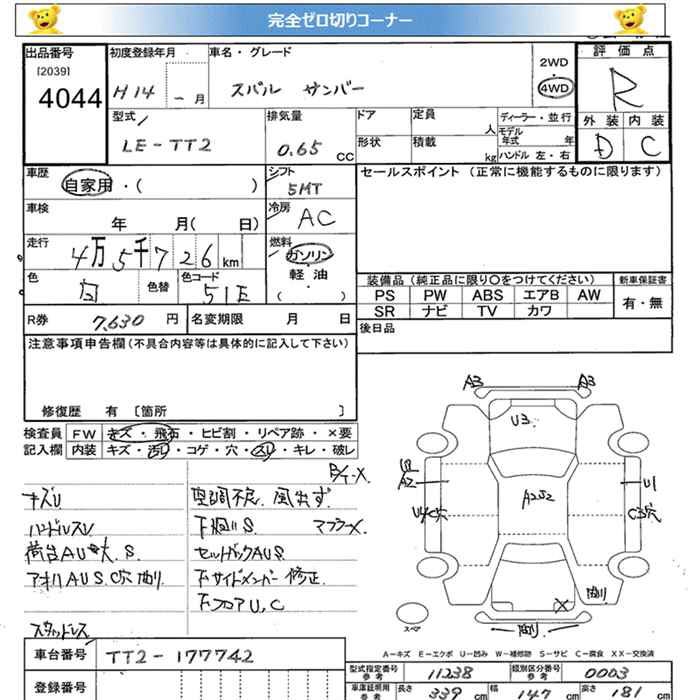 完全ゼロ切りコーナー
出品番号
[2039]
4044
初度登録年月
H14 - 月
車名・グレード
スバル サンバー
2WD
4WD
評価点
R
外装 内装
D C
型式
LE-TT2
排気量
0.65 CC
ドア
形状
定員
人
積載
kg
ディーラー・並行
モデル年式 年
ハンドル 左・右
車歴
自家用・( )
シフト
5MT
セールスポイント (正常に機能するものに限ります)
車検
年 月( 日)
冷房
AC
走行
4万5千726km
燃料
ガソリン
軽・油
( ・ )
色
白
色替
色コード
51E
装備品 (純正品に限り〇をつけてください)
PS PW ABS エアB AW
SR ナビ TV カワ
新車保証書
有・無
R券 7,630 円
名変期限 月 日
後日品
注意事項申告欄(不具合内容等は具体的に記入して下さい)
修復歴 有 [箇所 ]
検査員 FW キズ・飛石・ヒビ割・リペア跡・×要
記入欄 内装 キズ・汚レ・コゲ・穴・スレ・キレ・破レ
キズU
ハンドルスU
荷台AU大.S.
アオリAUS.C穴
スタッドレス
空調不良.風出ず
下廻リS. マフラーX.
セットバックAUS
下サイドメンバー修正
下フロアU,C
A3 A3
U3
A2
A2S2
U1
U4C穴
C3穴
X
スペア
A-キズ E-エクボ U-凹み W-補修跡 S-サビ C-腐食 XX-交換済
車台番号 TT2-177742
登録番号
型式指定番号 参考 11238
類別区分番号 参考 0003
車庫証明用 参考
長さ 339 cm
幅 147 cm
高さ 181 cm